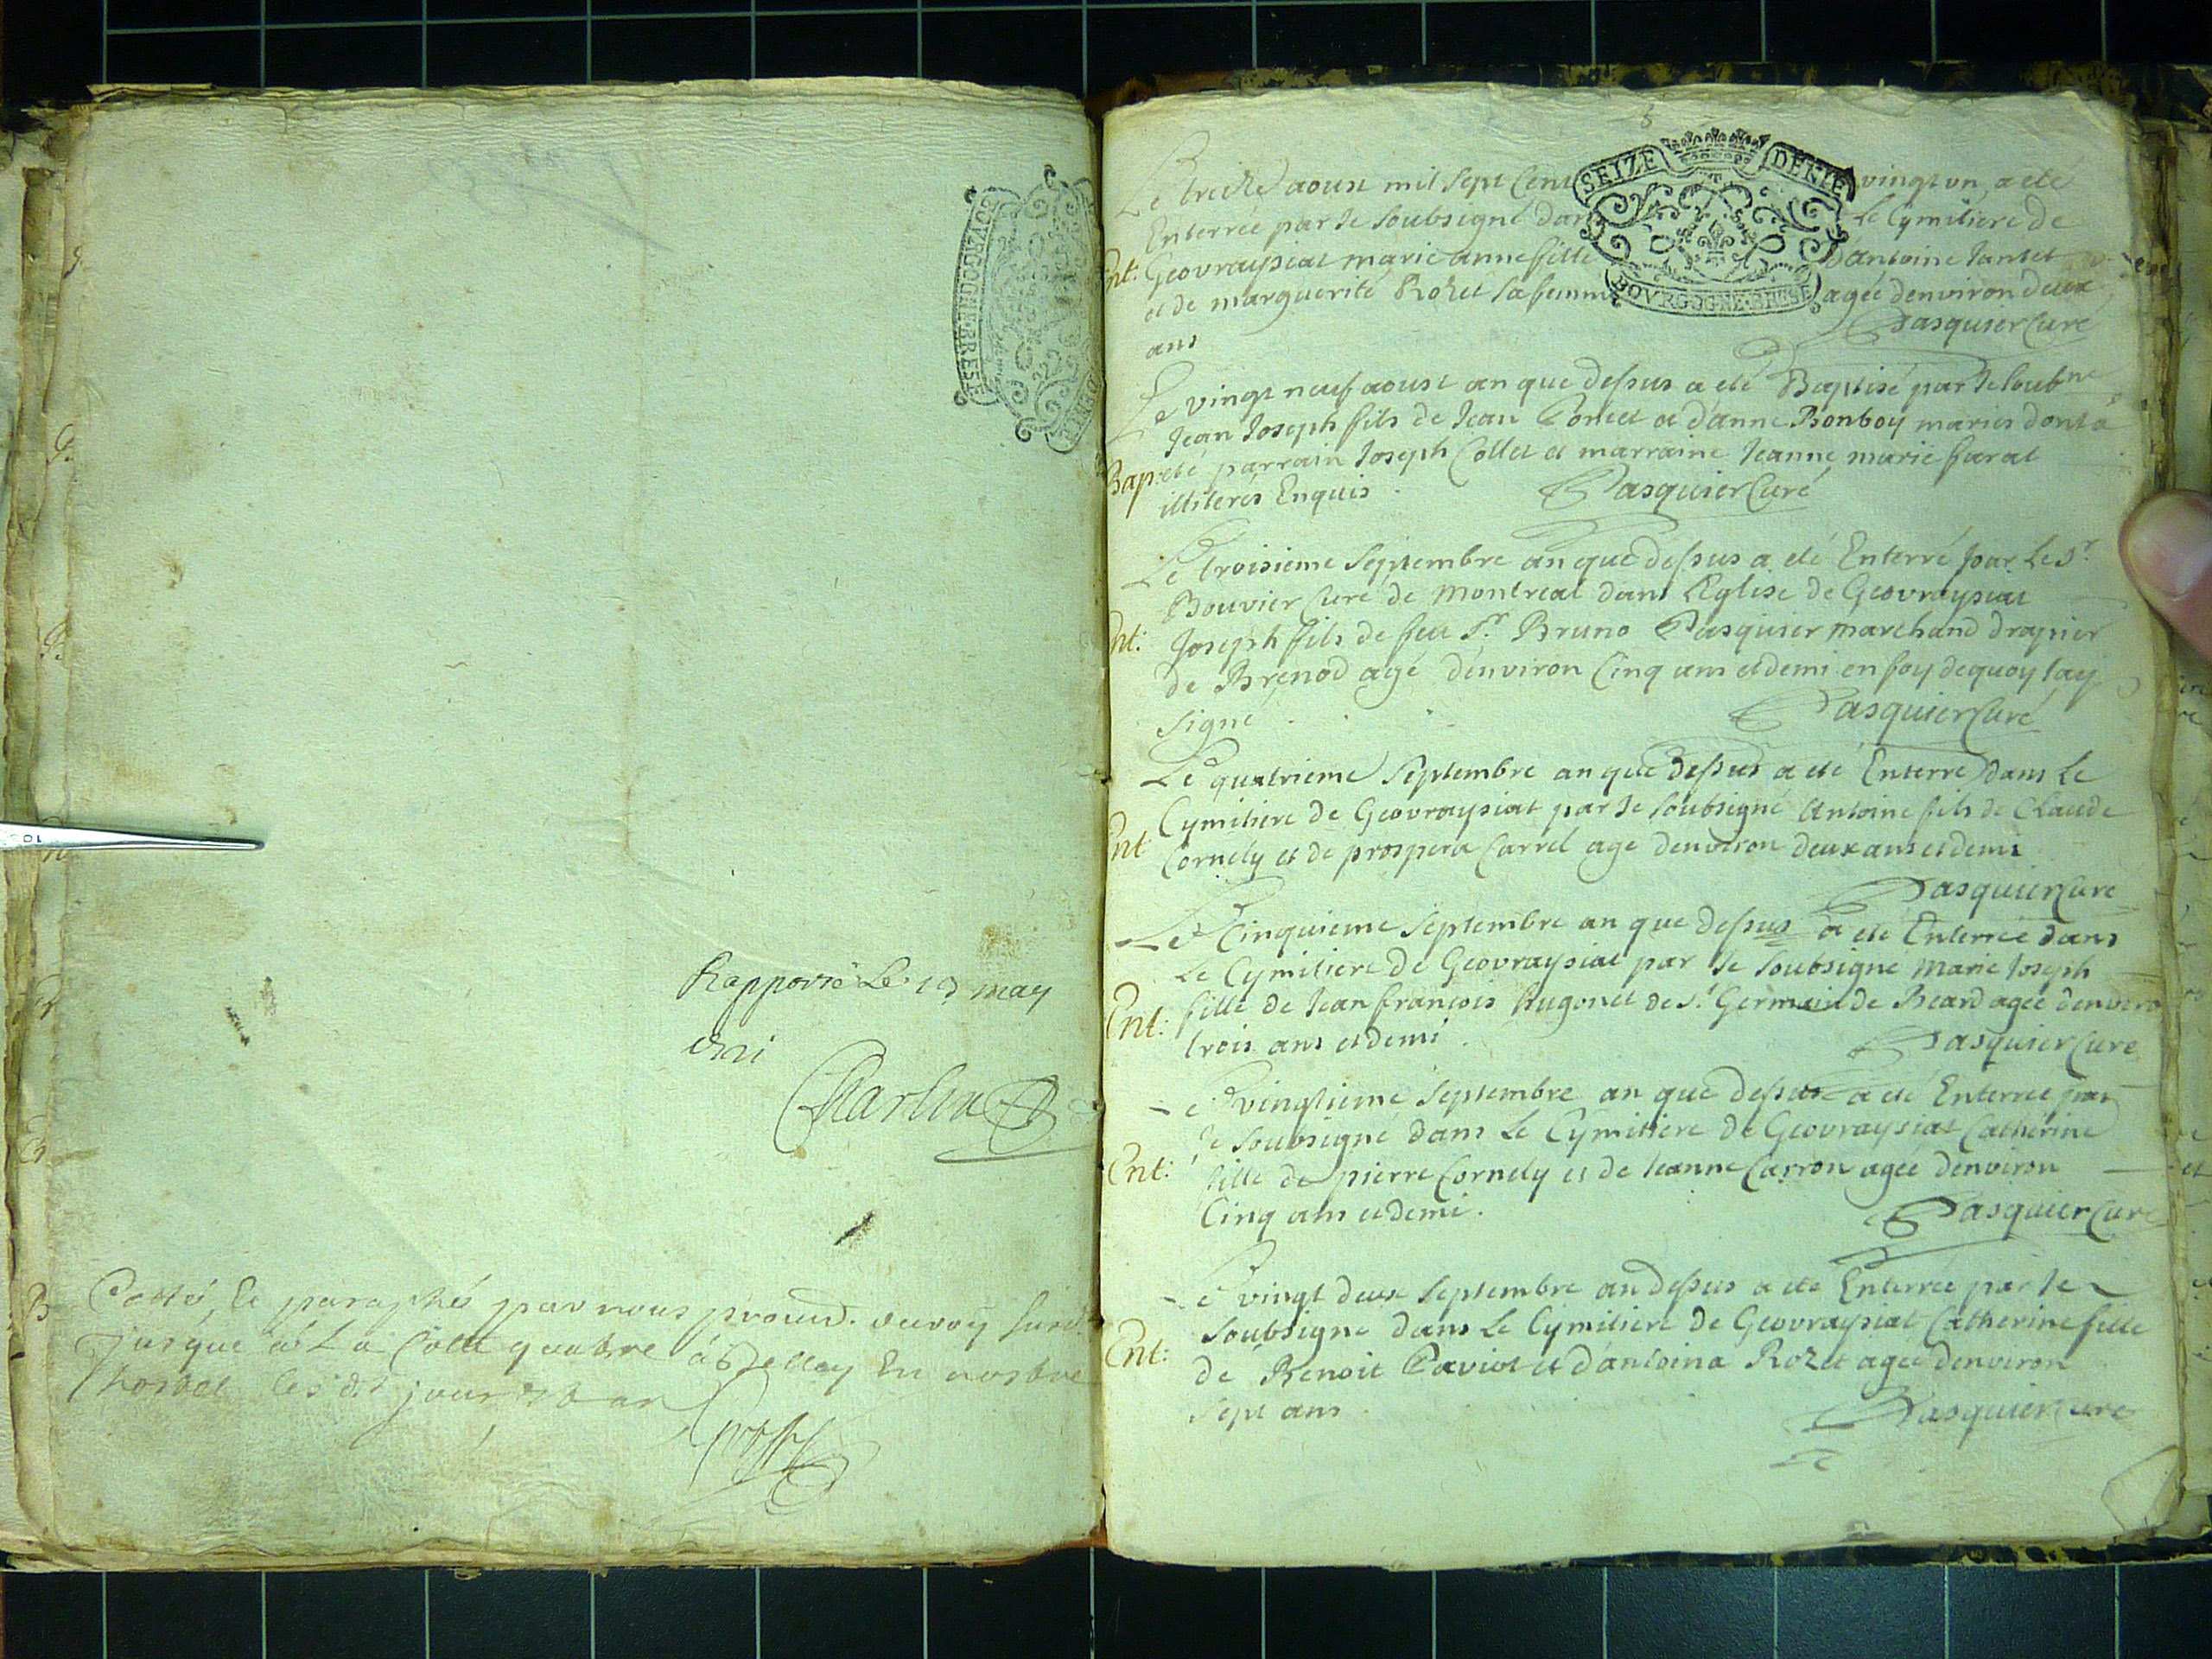 Rapporté Le 13 may
Charlin
Cotté, Et paraphé par nous
jusque à La Cotte quatre à Belley En nostre
hostel les dt jour et an
5
SEIZE DENIE
BOVRGOGNE BRESSE
Le treize aoust mil sept Cent vingt vn a eté
Enterrée par Je soubsigné dans Le Cymitiere de
Ent: Geovraysiat marie anne fille d'antoine Jantet
et de marguerite Rozet sa femme agée d'environ deux
ans Pasquier Curé
Le vingt neuf aoust an que dessus a eté Baptisé par Je soubne
Jean Joseph fils de Jean Poncet et d'anne Bonboy mariés dont a
Bap: eté parrain Joseph Collet et marraine Jeanne marie farat
illiterés Enquis Pasquier Curé
Le troisieme Septembre an que dessus a eté Enterré par Le Sr
Bouvier Curé de Montreal dans L'Eglise de Geovraysiat
Ent: Joseph fils de feu Sr. Bruno Pasquier marchand drapier
de Brenod agé d'environ Cinq ans et demi en foy dequoy J'ay
Signé Pasquier Curé
Le quatrieme Septembre an que dessus a eté Enterré dans Le
Cymitiere de Geovraysiat par Je soubsigné Antoine fils de Claude
Ent Cornely et de prospera Carrel agé d'environ deux ans et demi
Pasquier Curé
Le Cinquieme Septembre an que dessus a eté Enterrée dans
Le Cymitiere de Geovraysiat par Je soubsigné Marie Joseph
Ent: fille de Jean francois hugonet de St. Germain de Beard agée d'enviro
trois ans et demi Pasquier Curé
Le vingtieme Septembre an que dessus a eté Enterrée par
Je soubsigné dans Le Cymitiere de Geovraysiat Catherine
Ent: fille de pierre Cornely et de Jeanne Carron agée d'environ
Cinq ans et demi. Pasquier Curé
Le vingt deux Septembre an dessus a eté Enterrée par Je
Soubsigné dans Le Cymitiere de Geovraysiat Catherine fille
Ent: de Benoit Paviot et d'antoina Rozet agée d'environ
Sept ans Pasquier Curé